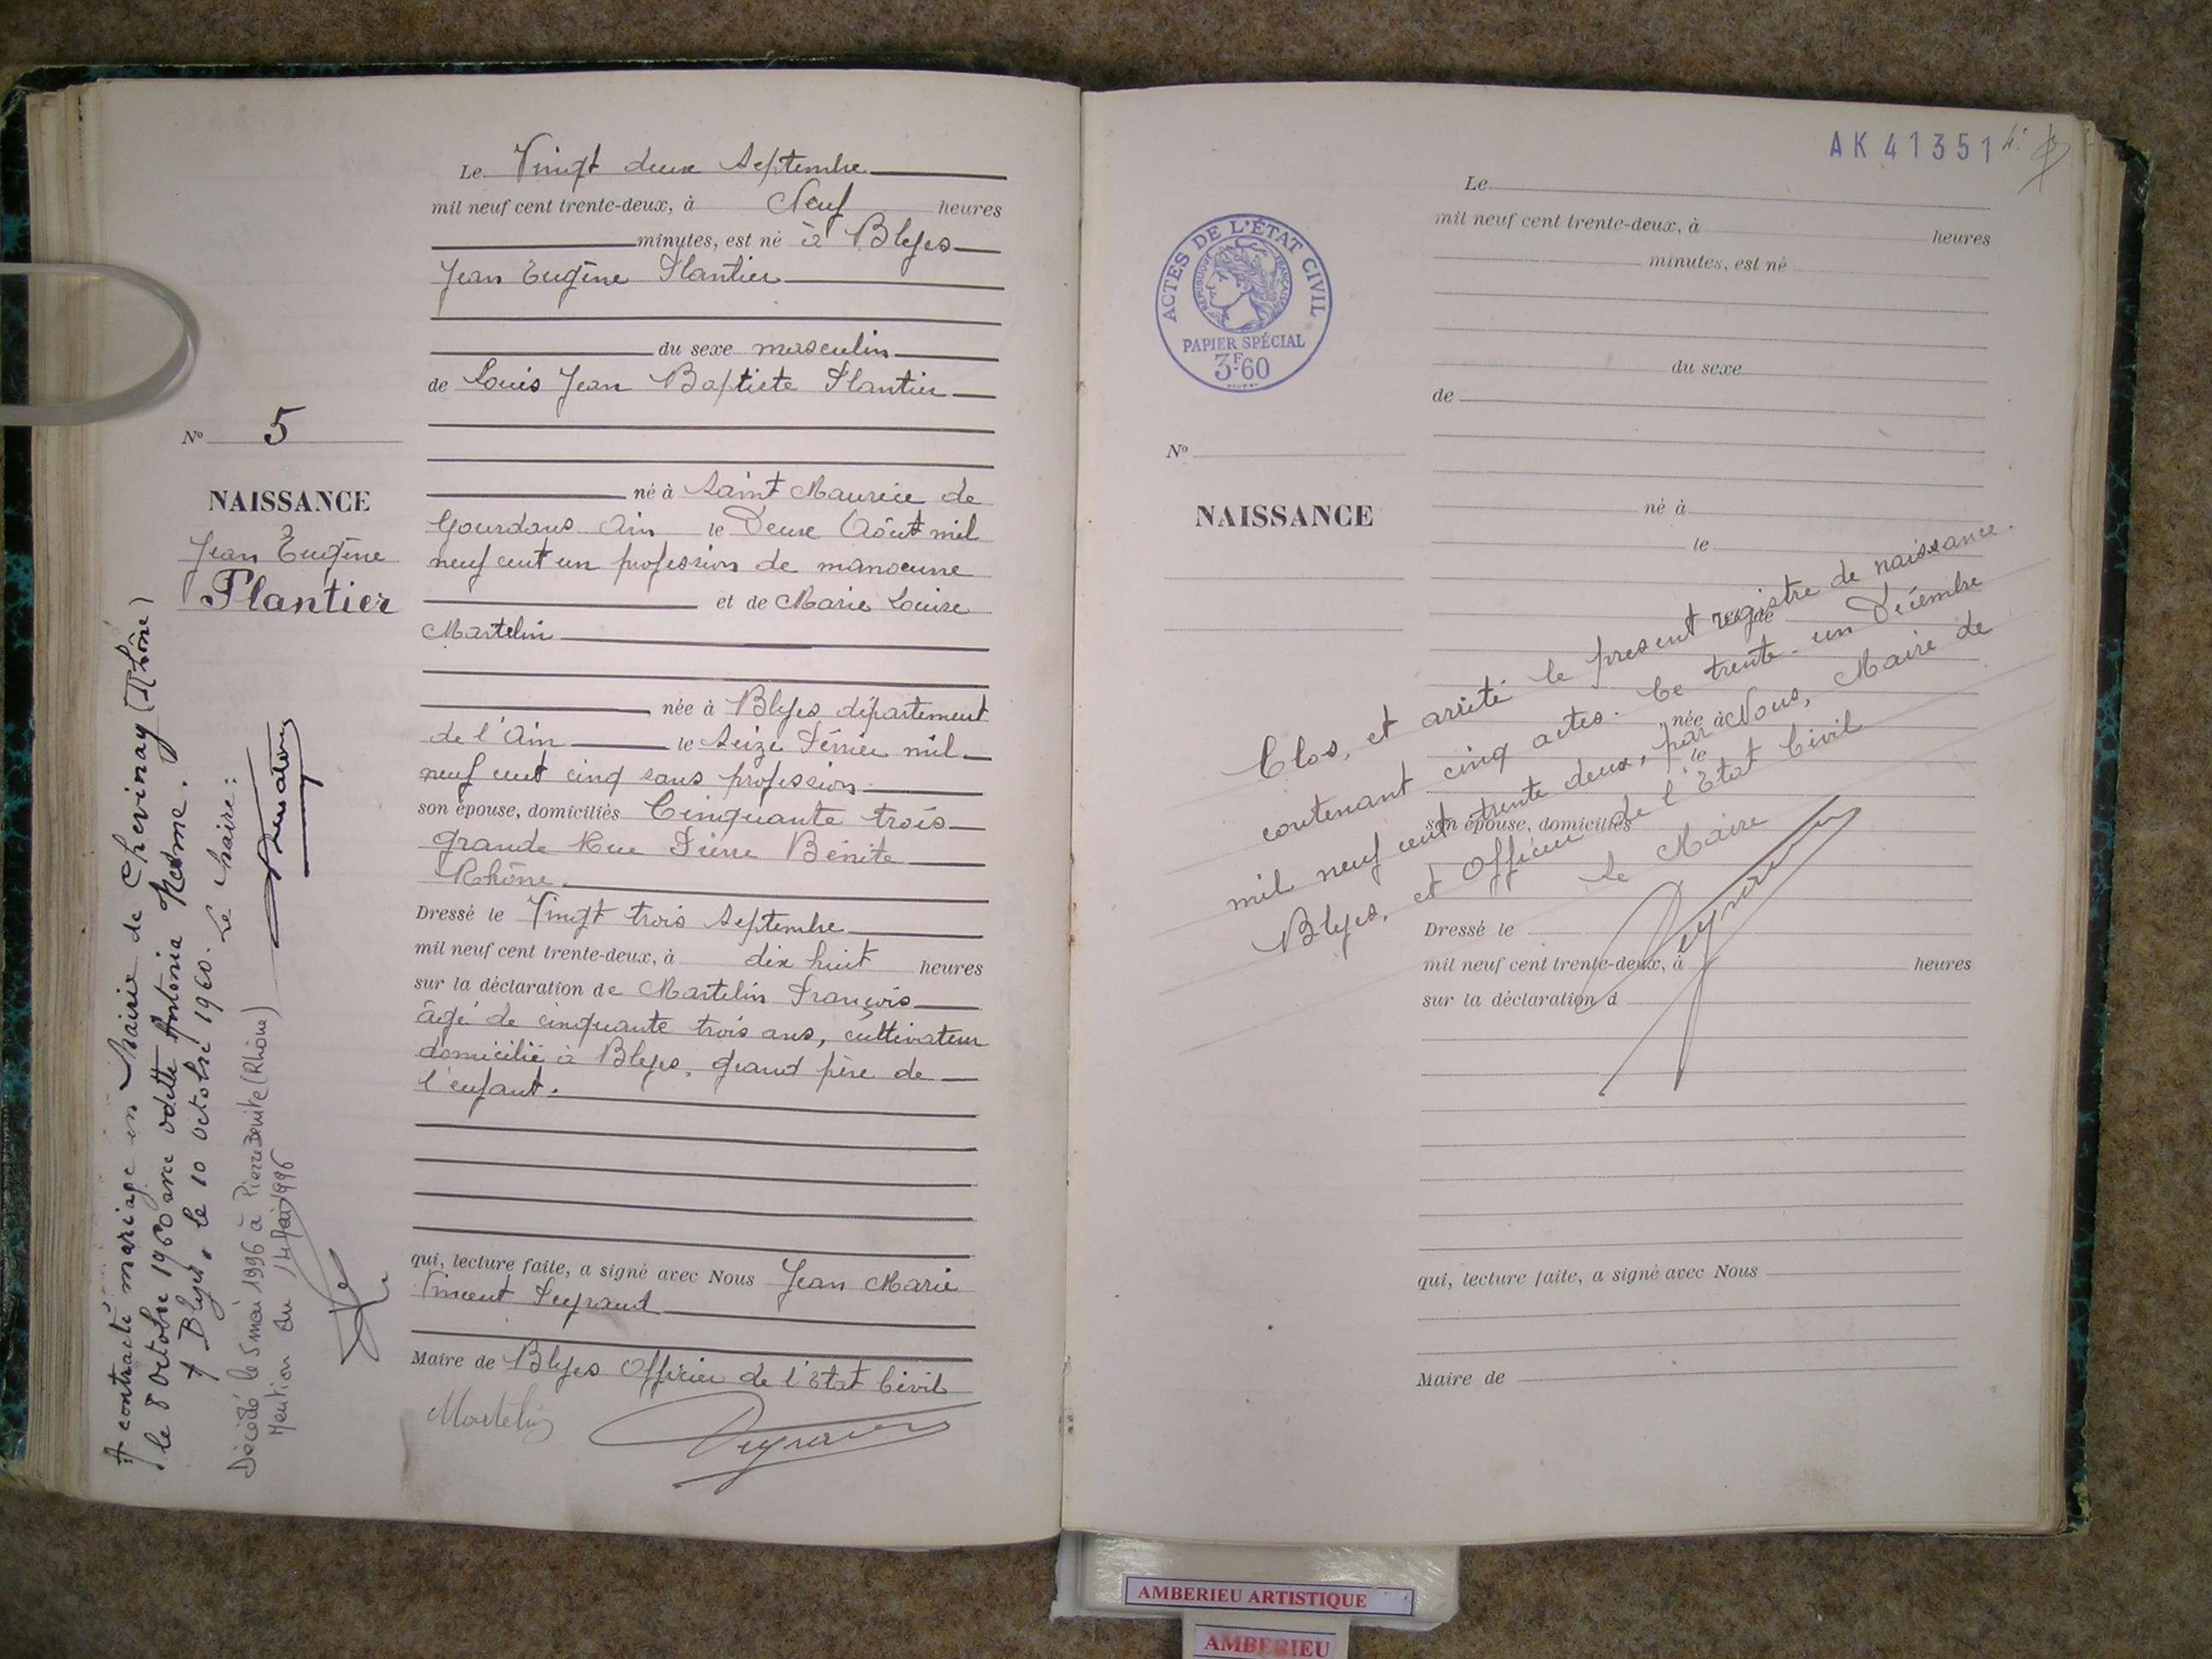 Le Vingt deux Septembre
mil neuf cent trente-deux, à Neuf heures
minutes, est né à Blyes
Jean Eugène Plantier
du sexe masculin
de Louis Jean Baptiste Plantier
né à Saint Maurice de
Gourdans Ain le Deux Août mil
neuf cent un profession de manoeuvre
et de Marie Louise
Martelin
née à Blyes département
de l'Ain le Seize Février mil
neuf cent cinq sans profession
son épouse, domiciliés Cinquante trois
grande Rue Pierre Bénite
Rhône.
Dressé le Vingt trois Septembre
mil neuf cent trente-deux, à dix huit heures
sur la déclaration de Martelin François
âgé de cinquante trois ans, cultivateur
domicilié à Blyes, grand père de
l'enfant.
qui, lecture faite, a signé avec Nous Jean Marie
Vincent Peyraud
Maire de Blyes Officier de l'Etat Civil
Martelin
Peyraud
No 5
NAISSANCE
Jean Eugène
Plantier
A contracté mariage en Mairie de Chevinay (Rhône)
le 8 Octobre 1960 avec Odette Antonia
A Blyes, le 10 octobre 1960. Le Maire :
Décédé le 5 mai 1996 à Pierre Bénite (Rhône)
Mention du 14 Mai 1996
AK 41351
ACTES DE L'ÉTAT CIVIL
RÉPUBLIQUE FRANÇAISE
PAPIER SPÉCIAL
3F.60
Le
mil neuf cent trente-deux, à heures
minutes, est né
du sexe
de
No
NAISSANCE
né à
le
et de
née à
le
son épouse, domiciliés
Dressé le
mil neuf cent trente-deux, à heures
sur la déclaration d
qui, lecture faite, a signé avec Nous
Maire de
Clos, et arrêté le present registre de naissance.
contenant cinq actes. Ce trente-un Décembre
mil neuf cent trente deux, par Nous, Maire de
Blyes, et Officier de l'Etat Civil
Le Maire
Peyraud
AMBERIEU ARTISTIQUE
AMBERIEU